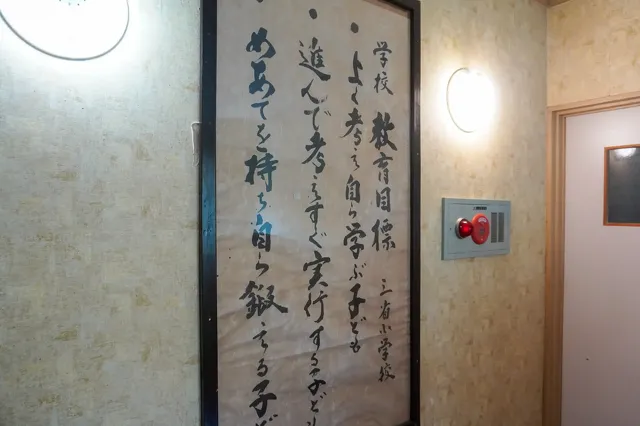 学校 教育目標 三省小学校
・よく考え自ら学ぶ子ども
・進んで考えすぐ実行する子ども
・めあてを持ち自ら鍛える子ど